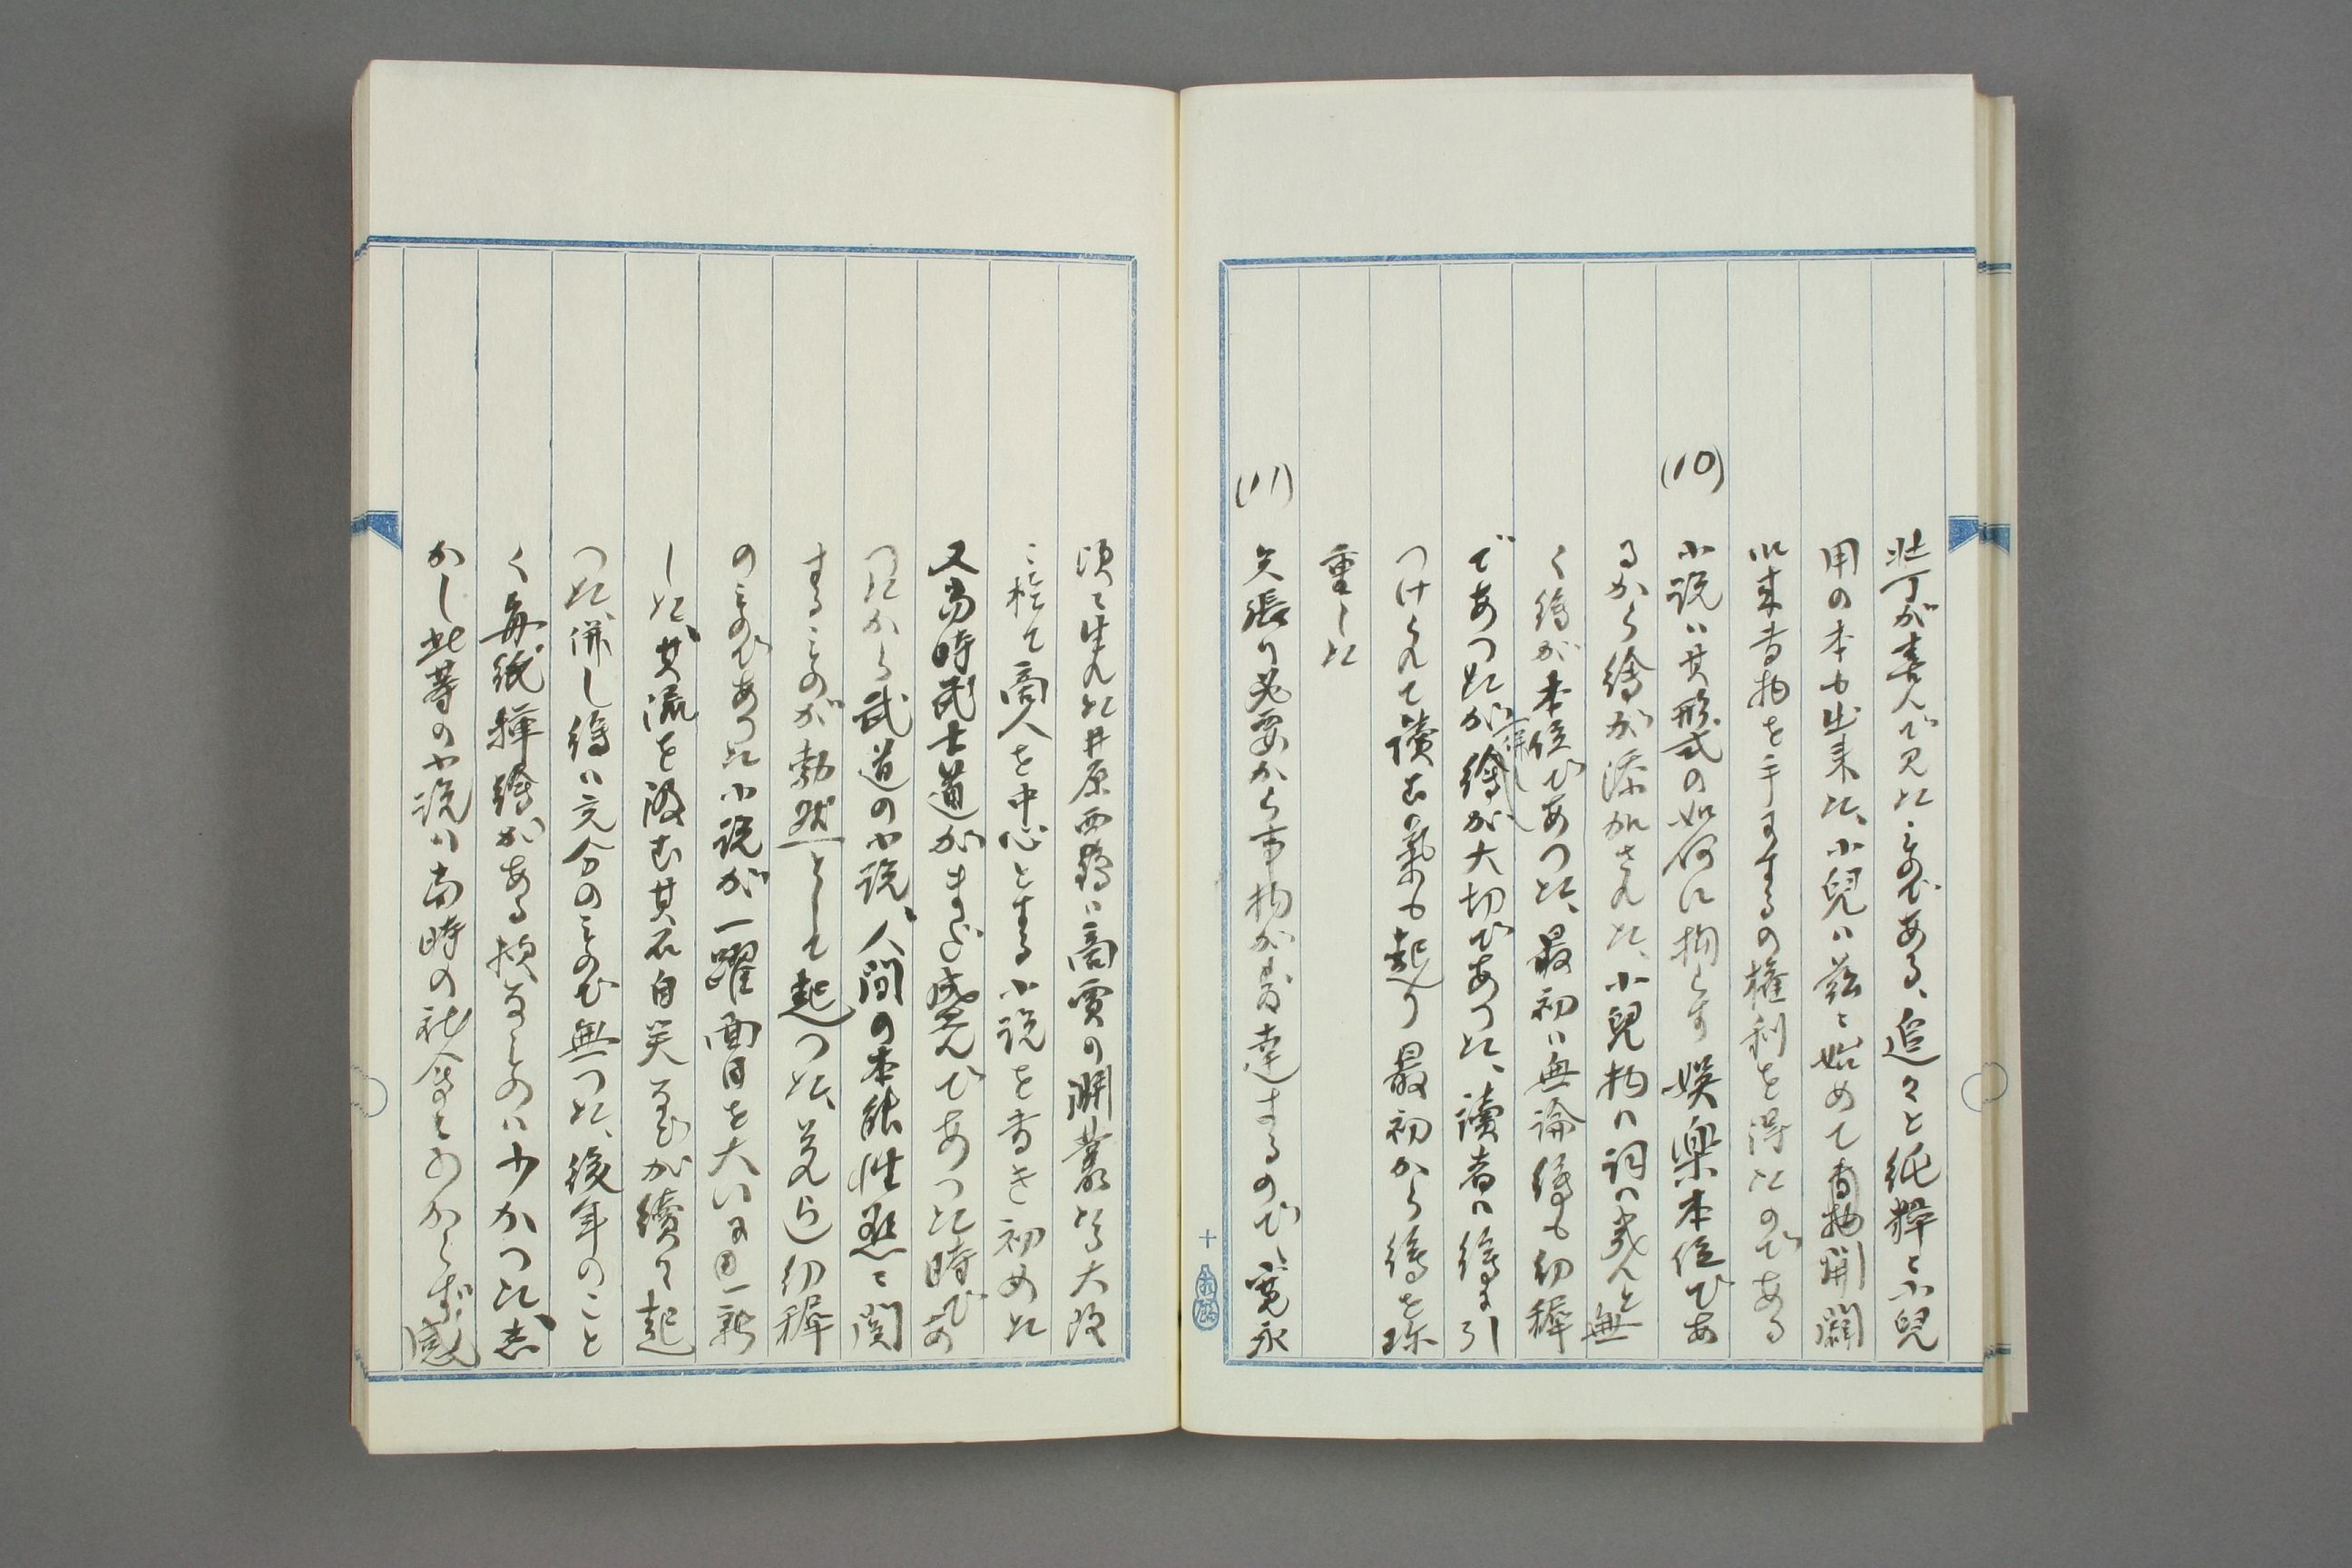 壮丁が喜んで見たものである、追々と純粋と小児
用の本も出来た、小兒ハ茲に始めて書物開闢
以来書物を手にするの権利を得たのである
(10)
小説ハ其形式の如何に拘らず娯楽本位であ
るから繪が添加された、小兒物ハ詞ハ殆んと無
く繪が本位であつた、最初ハ無論繪も幼稚
であつたが併し繪が大切であつた、讀者ハ繪に引
つけられて讀む氣も起り最初から繪を珍
重した
(11)
矢張り必要から事物が発達するので、寛永
頃に生れた井原西鶴ハ商賣の淵叢たる大阪
に在て商人を中心とする小説を書き初めた
又当時武士道がまだ盛んであつた時であ
つたから武道の小説、人間の本能性慾に関
するものが勃然として起つた、夫れ迄幼稚
のものであつた小説が一躍面目を大いに一新
した、其流を汲む其石自笑などが續々起
つた、併し繪ハ充分のもので無つた、後年のこと
く毎紙揷繪がある様なものハ少かつた、志
かし此等の小説ハ当時の社會を少からず感
十